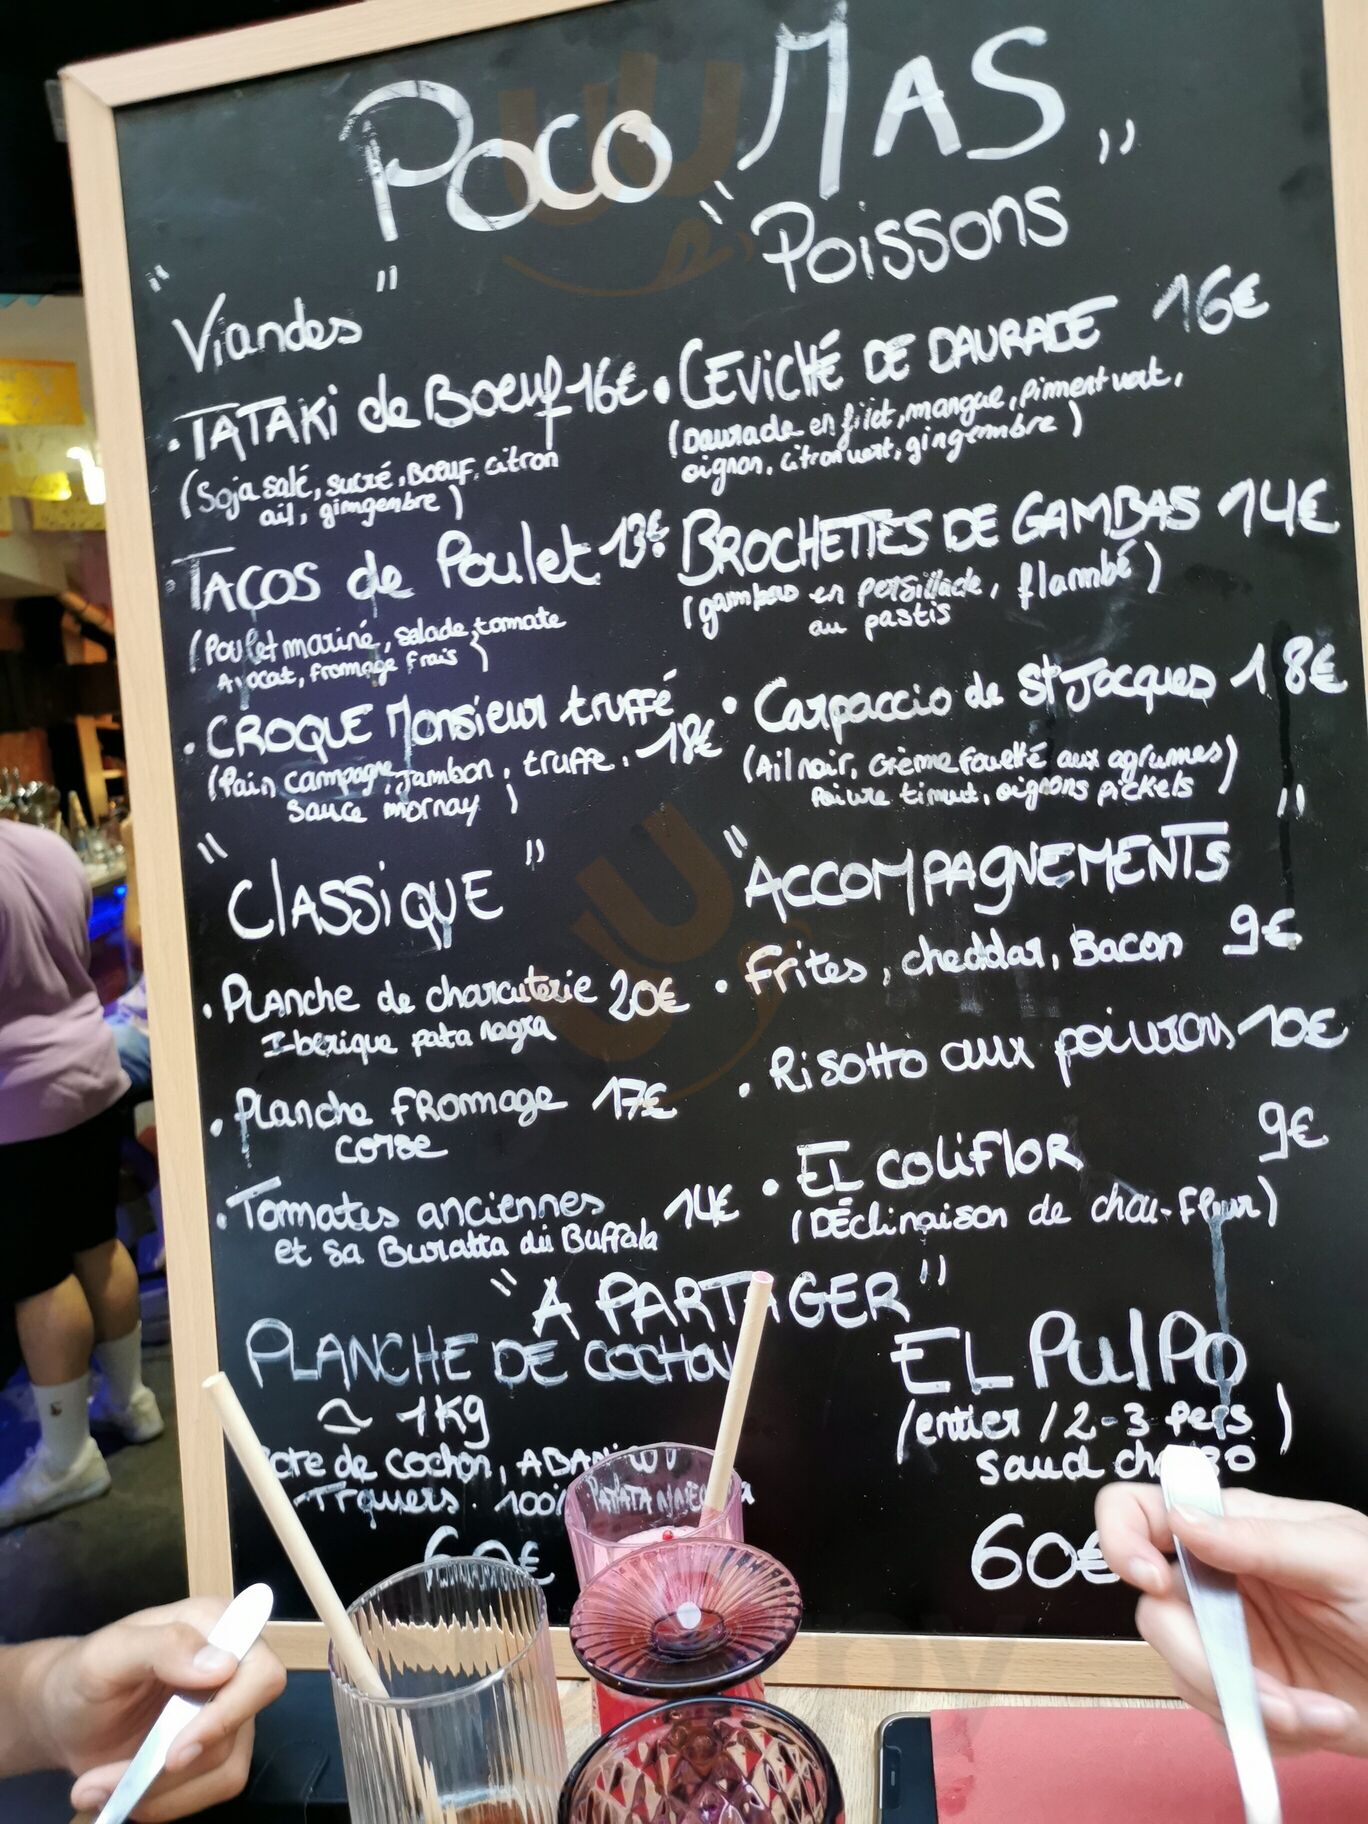 Poco MAS
" Viandes "
• TATAKI de Boeuf 16€
(Soja salé, sucré, Boeuf, citron
ail, gimgembre)
• TACOS de Poulet 13€
(Poulet mariné, salade, tomate
Avocat, fromage frais)
• CROQUE Monsieur truffé
(Pain campagne, jambon, truffe, 18€
sauce mornay)
" Poissons "
• CEVICHÉ DE DAURADE 16€
(Daurade en filet, mangue, piment vert,
oignon, citron vert, gingembre)
BROCHETTES DE GAMBAS 14€
(gambas en persillade, flambé)
au pastis
• Carpaccio de St Jacques 18€
(Ail noir, crème fouetté aux agrumes)
Poivre timut, oignons pickels
" ClASSiQUE "
• PLANche de charcuterie 20€
Iberique pata nagra
• Planche FROMmage 17€
corse
• Tommates anciennes 14€
et sa Buratta dii Buffala
" ACCOMPAGNEMENTS "
• Frites, cheddar, Bacon 9€
• Risotto aux poivrons 10€
• EL coliFlOR 9€
(DÉclinaison de chou-Fleur)
" A PARTAGER "
PLANCHE DE COCHON
≃ 1Kg
de cochon,
Travers.
60€
EL PulPO
(entier / 2-3 pers)
60€